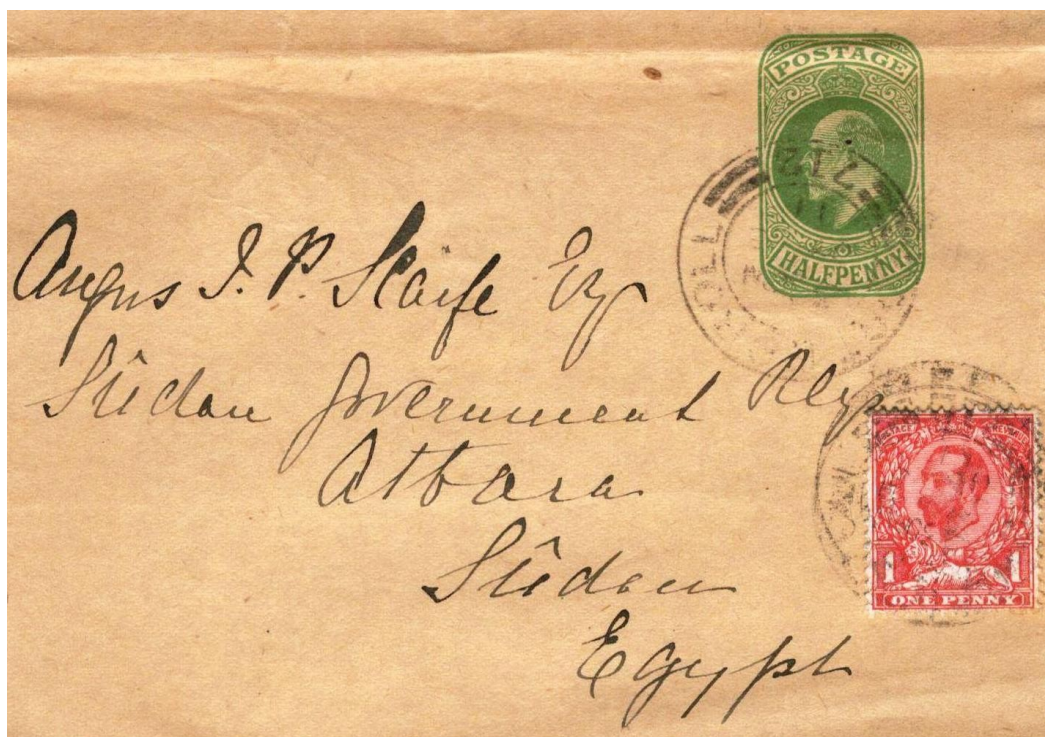 POSTAGE
HALFPENNY
Angus J. P. Scaife Esq
Sûdan Government Rlys
Atbara
Sûdan
Egypt
POSTAGE REVENUE
1 1
ONE PENNY